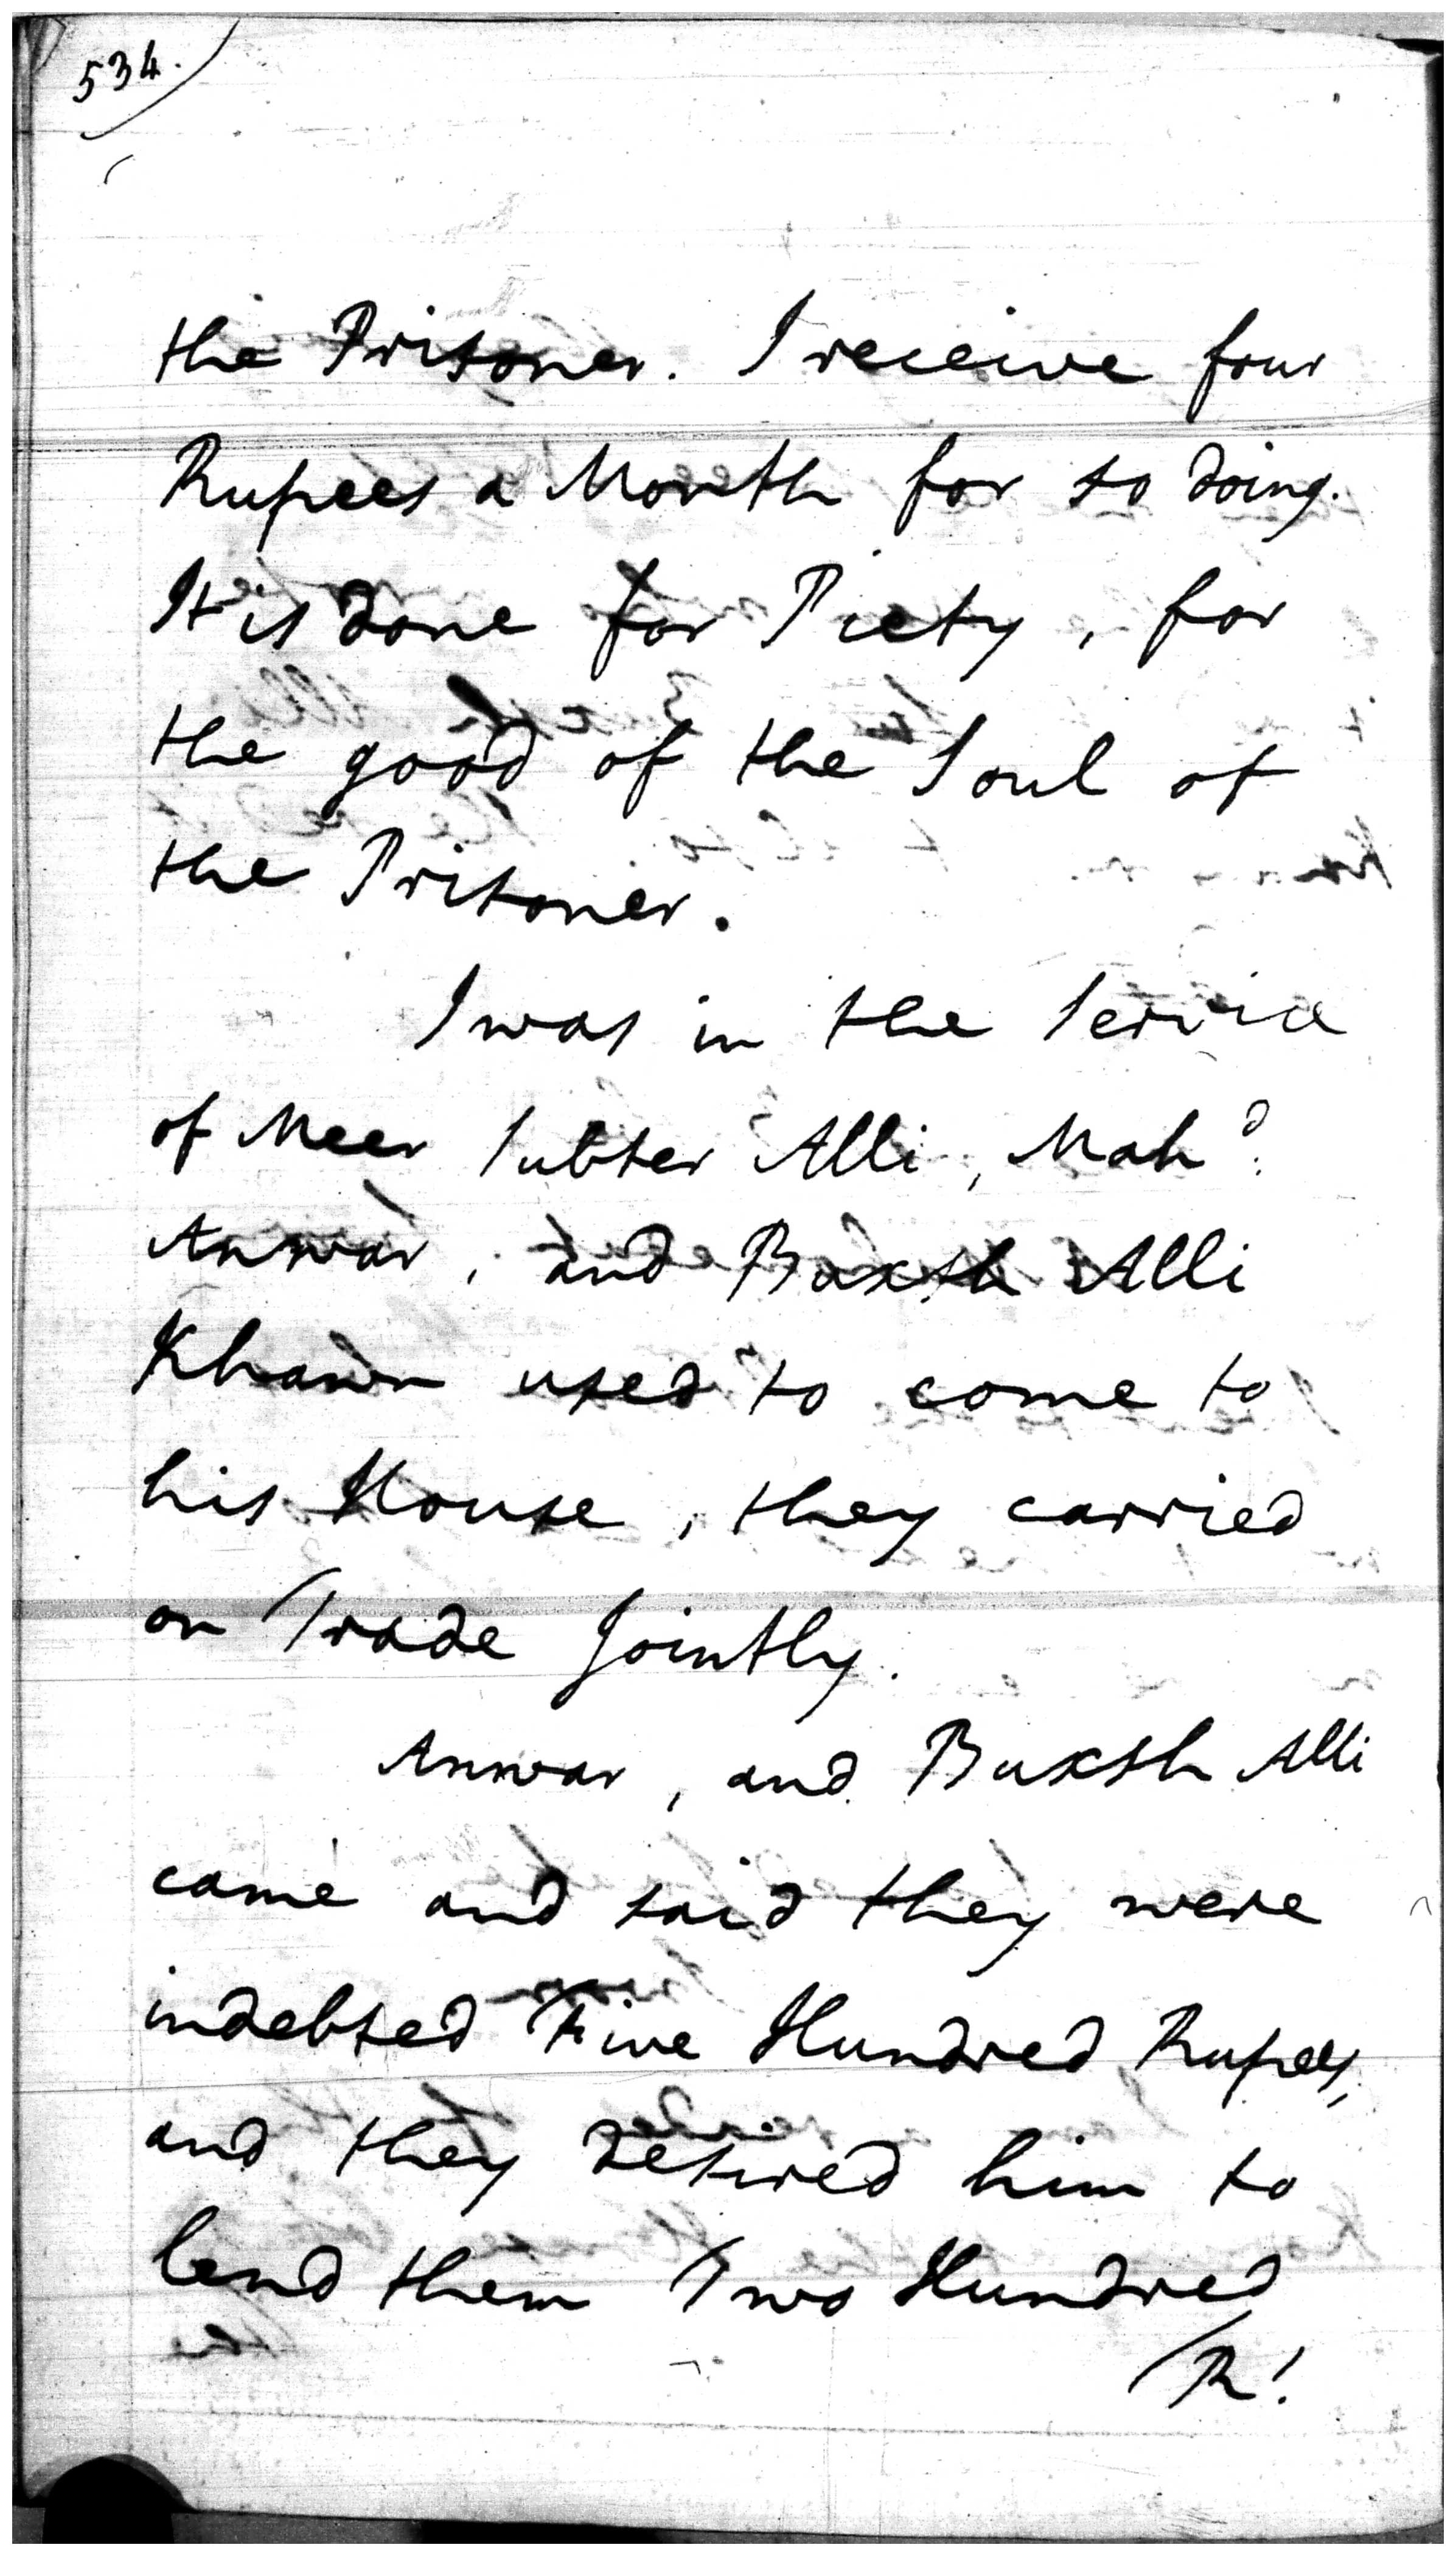 534.
the Prisoner. I receive four
Rupees a Month for so doing.
It is done for Piety, for
the good of the Soul of
the Prisoner.
I was in the Service
of Meer Subter Alli, Mahd.
Anwar, and Buxsh Alli
Khawn used to come to
his House, they carried
on Trade Jointly.
Anwar, and Buxsh Alli
came and said they were
indebted Five Hundred Rupees,
and they desired him to
lend them Two Hundred
Rs.